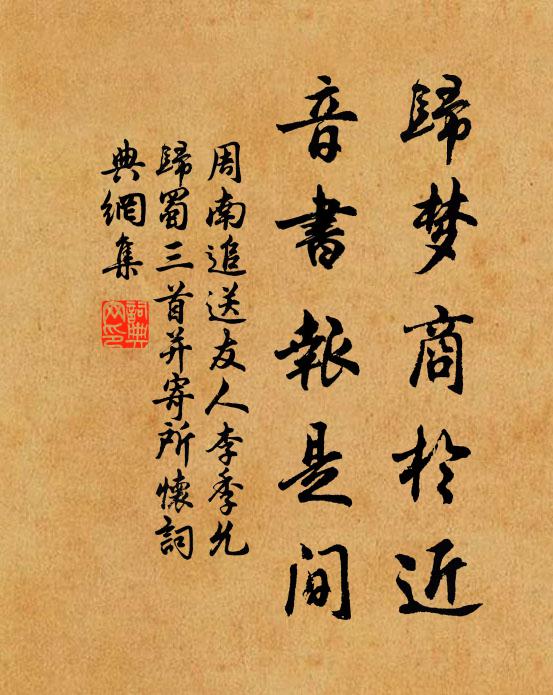 歸梦商於近
音書報是間
周南追送友人李季允
歸蜀三首并寄所懷詞
典網集
詞典網印